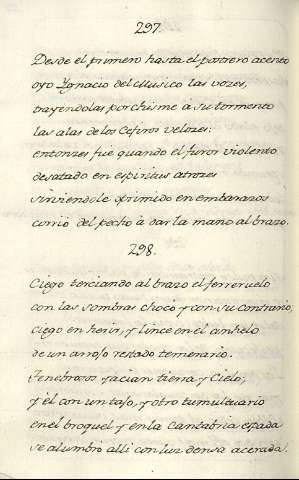 297.
Desde el primero hasta el postrero acento
oyo Ygnacio del Musico las vozes,
trayendolas por chisme à su tormento
las alas de los Cefiros velozes:
entonzes fue quando el furor violento
desatado en espiritus atrozes
sirviendole oprimido en embarazos
corriò del pecho à dar la mano al brazo.
298.
Ciego terciando al brazo el ferreruelo
con las sombras chocò y con su contrario,
ciego en herir, y lince en el anhelo
de un arrojo restado temerario.
Tenebroso yacian tierra y Cielo;
y el con un tajo, y otro tumultuario
en el broquel y en la Cantabria espada
se alumbrò alli con luz densa acerada.